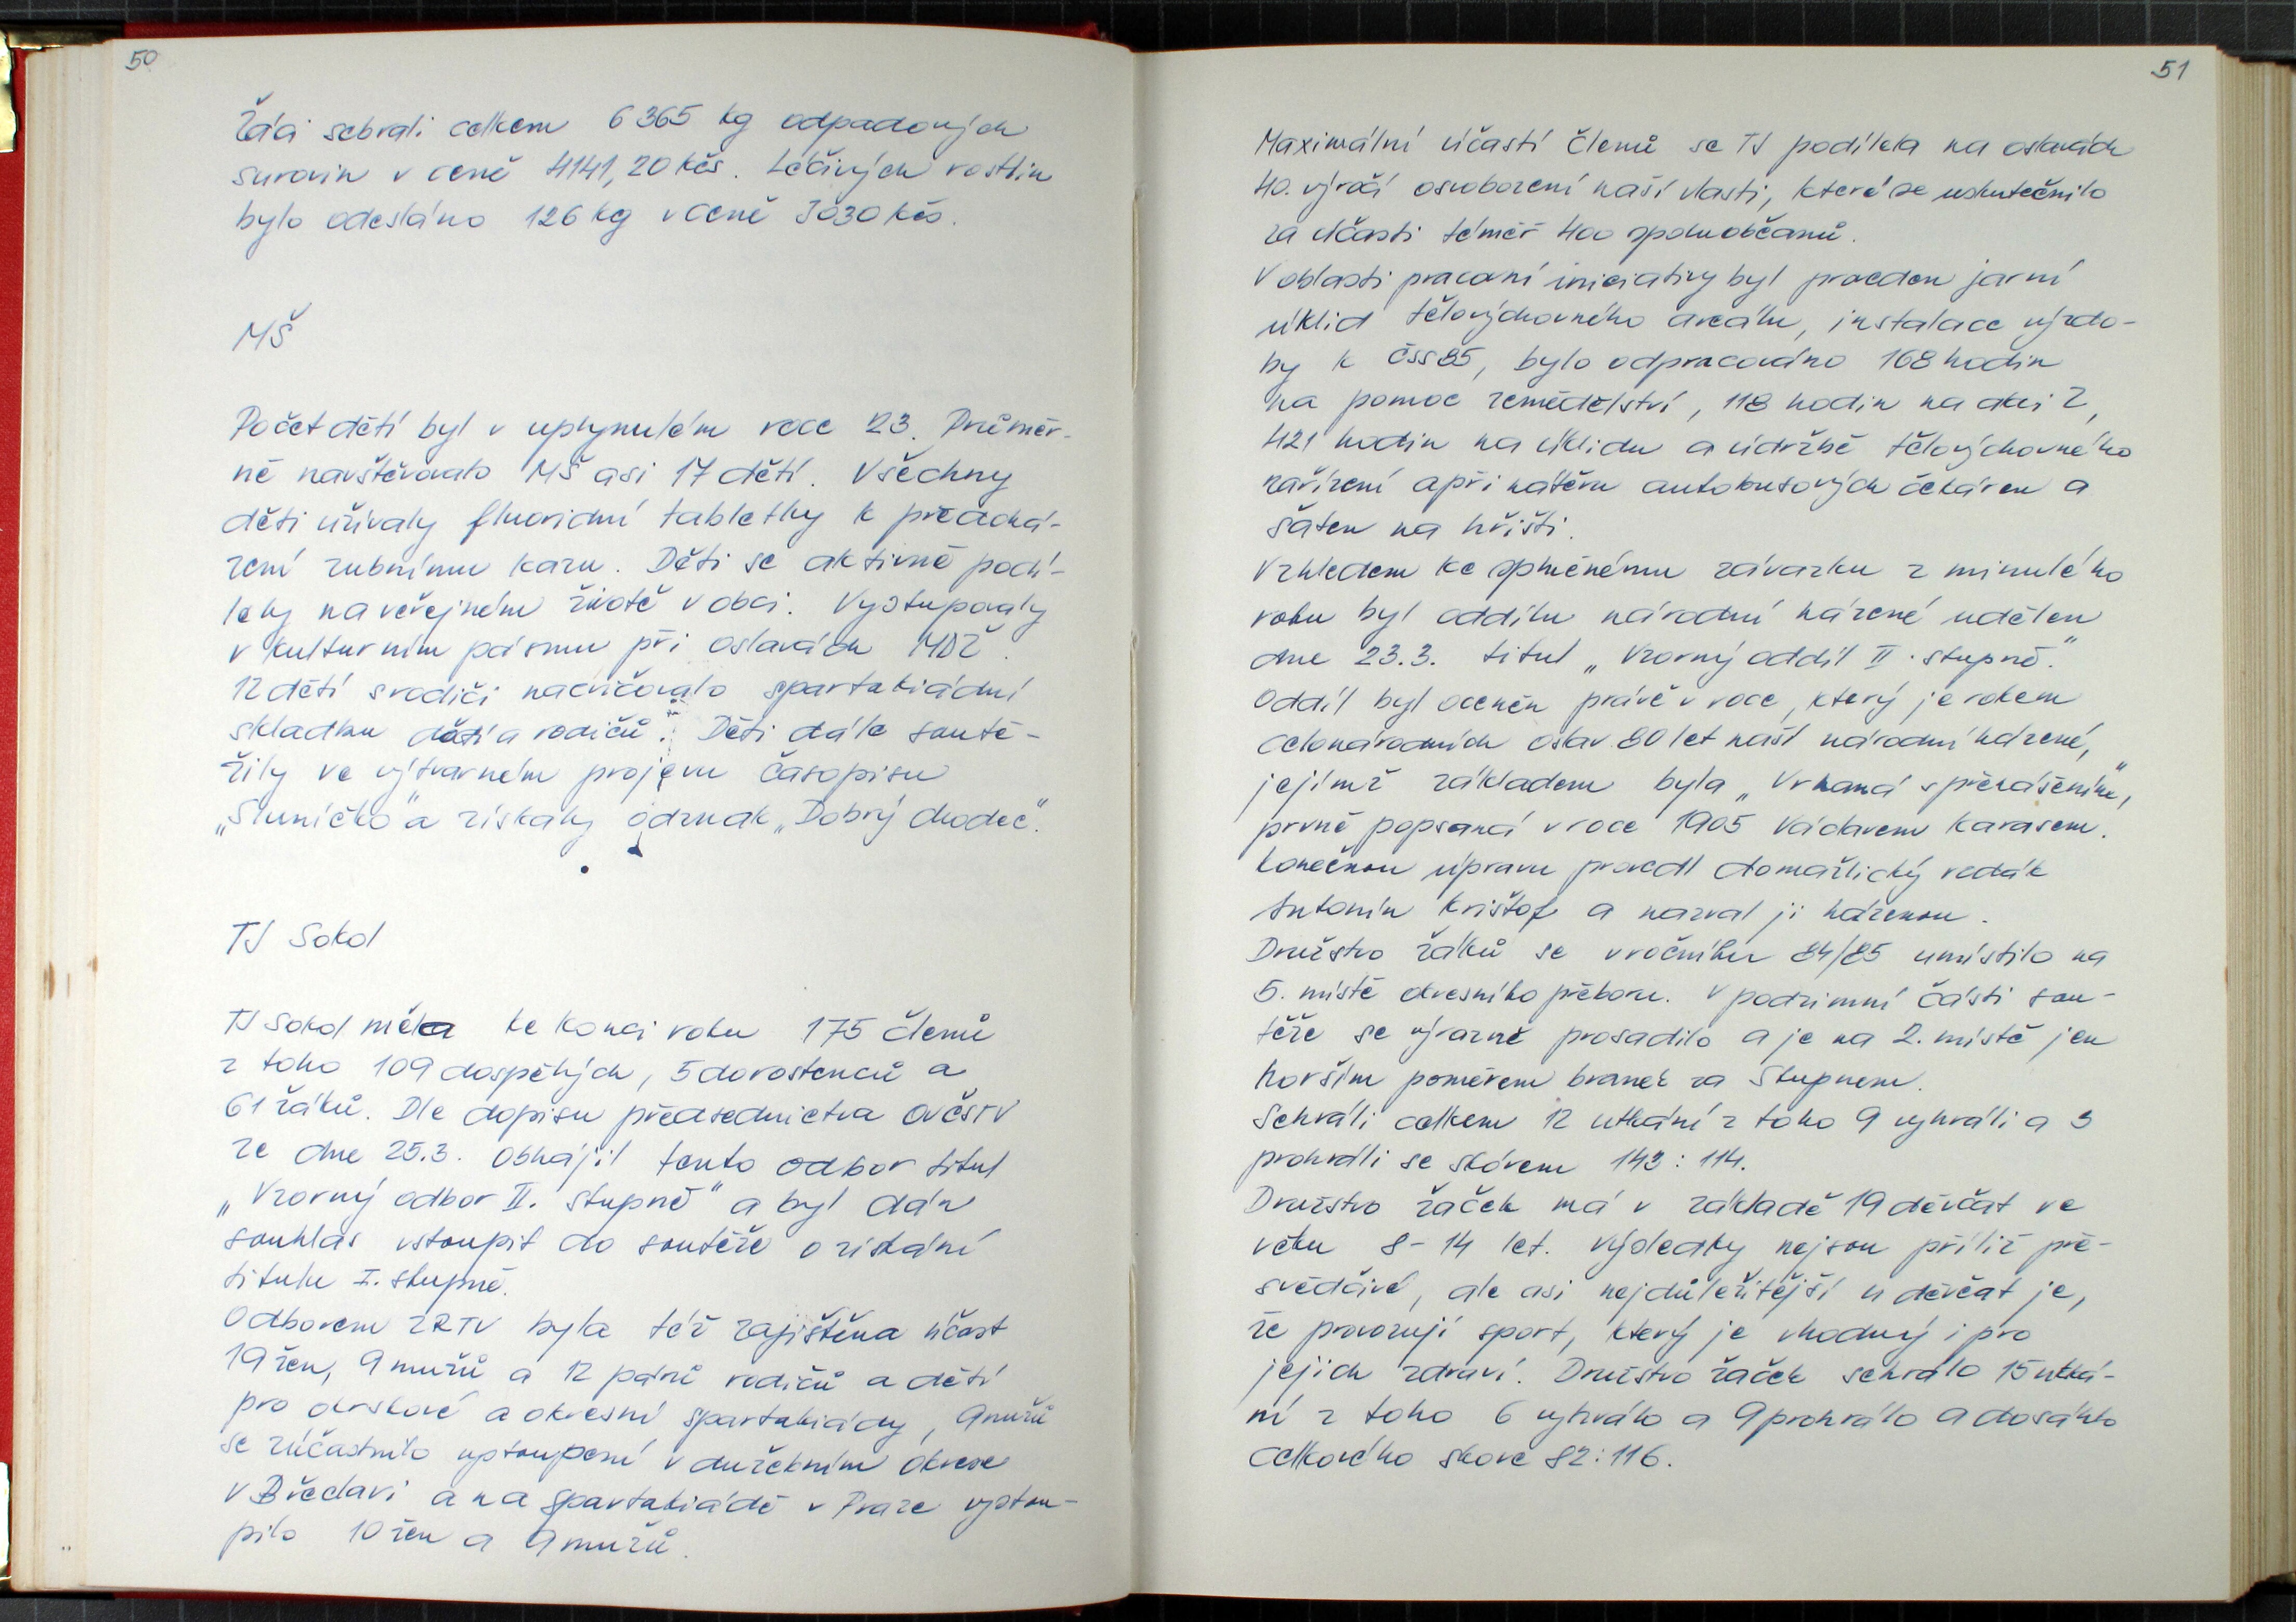 50
Žáci sebrali celkem 6 365 kg odpadových
surovin v ceně 4141,20 Kčs. Léčivých rostlin
bylo odesláno 126 kg v ceně 3030 Kčs.
MŠ
Počet dětí byl v uplynulém roce 23. Průměr-
ně navštěvovalo MŠ asi 17 dětí. Všechny
děti užívaly fluoridní tabletky k předchá-
zení zubnímu kazu. Děti se aktivně podí-
lely na veřejném životě v obci. Vystupovaly
v kulturním pásmu při oslavách MDŽ.
12 dětí s rodiči nacvičovalo spartakiádní
skladbu dětí a rodičů. Děti dále soutě-
žily ve výtvarném projevu časopisu
„Sluníčko" a získaly odznak „Dobrý chodec".
TJ Sokol
TJ Sokol měla ke konci roku 175 členů
z toho 109 dospělých, 5 dorostenců a
61 žáků. Dle dopisu předsednictva OVČSTV
ze dne 25.3. obhájil tento odbor titul
„Vzorný odbor II. stupně" a byl dán
souhlas vstoupit do soutěže o získání
titulu I. stupně.
Odborem ZRTV byla též zajištěna účast
19 žen, 9 mužů a 12 párů rodičů a dětí
pro okrskové a okresní spartakiády, 9 mužů
se zúčastnilo vystoupení v družebním okrese
v Břeclavi a na spartakiádě v Praze vystou-
pilo 10 žen a 9 mužů.
51
Maximální účastí členů se TJ podílela na oslavách
40. výročí osvobození naší vlasti, které se uskutečnilo
za účasti téměř 400 spoluobčanů.
V oblasti pracovní iniciativy byl proveden jarní
úklid tělovýchovného areálu, instalace výzdo-
by k ČSS 85, bylo odpracováno 168 hodin
na pomoc zemědělství, 118 hodin na akci Z,
421 hodin na úklidu a údržbě tělovýchovného
zařízení a při nátěru autobusových čekáren a
šaten na hřišti.
Vzhledem ke splněnému závazku z minulého
roku byl oddílu národní házené udělen
dne 23.3. titul „Vzorný oddíl II. stupně."
Oddíl byl oceněn právě v roce, který je rokem
celonárodních oslav 80 let naší národní házené,
jejímž základem byla „Vrhaná s přeháženíke",
prvně popsaná v roce 1905 Václavem Karasem.
Konečnou úpravu provedl domažlický rodák
Antonín Krištof a nazval ji házenou.
Družstvo žáků se v ročníku 84/85 umístilo na
5. místě okresního přeboru. V podzimní části sou-
těže se výrazně prosadilo a je na 2. místě jen
horším poměrem branek za Stupnem.
Sehráli celkem 12 utkání z toho 9 vyhráli a 3
prohráli se skórem 143 : 114.
Družstvo žaček má v základě 19 děvčat ve
věku 8-14 let. Výsledky nejsou příliš pře-
svědčivé, ale asi nejdůležitější u děvčat je,
že provozují sport, který je vhodný i pro
jejich zdraví. Družstvo žaček sehrálo 15 utká-
ní z toho 6 vyhrálo a 9 prohrálo a dosáhlo
celkového skore 82:116.